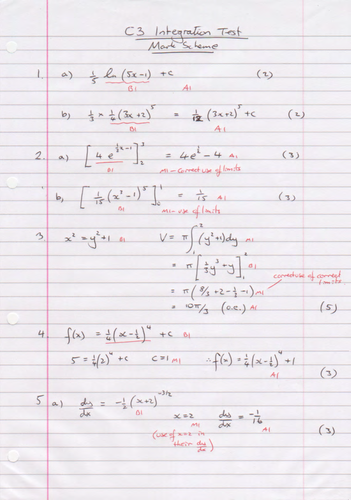 C3 Integration Test
Mark Scheme
1. a) 1/5 ln (5x-1) + c (2)
B1 A1
b) 1/3 × 1/4 (3x+2)^5 = 1/12 (3x+2)^5 + c (2)
B1 A1
2. a) [4 e^(1/3 x-1)]_2^3 = 4e^ - 4 A1 (3)
B1 M1 - correct use of limits
b) [1/15 (x^3-1)^5]_0^1 = 1/15 A1 (3)
B1 M1 - use of limits
3 x² = y² + 1 B1 V = π ∫_1^2 (y²+1) dy M1
= π [1/3 y³ + y]_1^2 B1
correct use of correct limits
= π (8/3 + 2 - 1/3 - 1) M1
= 10π/3 (o.e.) A1 (5)
4. f(x) = 1/4 (x - 1/2)^4 + c B1
5 = 1/4 (2)^4 + c c = 1 M1 ∴ f(x) = 1/4 (x - 1/2)^4 + 1
A1 (3)
5 a) dy/dx = -1/2 (x+2)^(-3/2)
B1 x=2 dy/dx = -1/16
M1 A1 (3)
(use of x=2 in
their dy/dx)